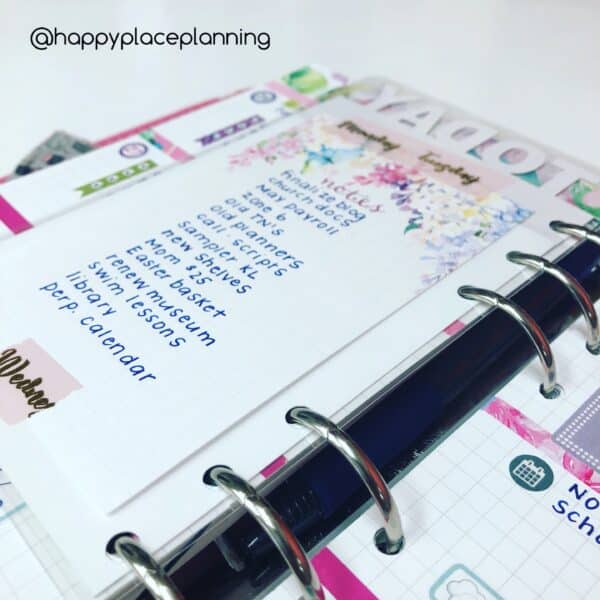 @happyplaceplanning
TODAY
Monday Tuesday
notes
finalize blog
church docs
May payroll
Zone 6
old TN's
old planners
call. scripts
sampler KL
new shelves
Mom $25
Easier basket
renew museum
swim lessons
library
perp. calendar
Wednes
NO
Sch